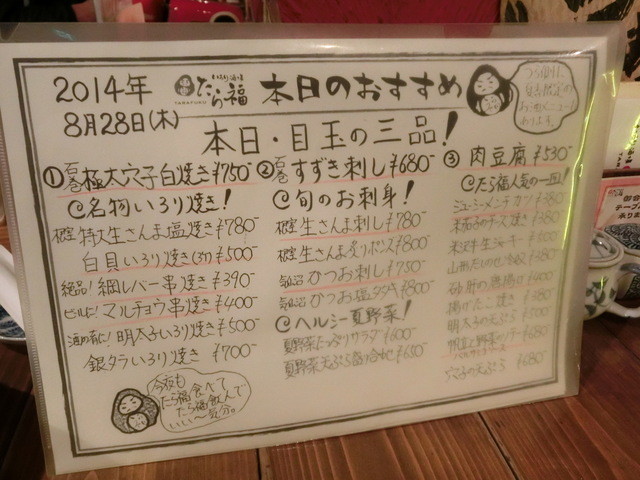 2014年
8月28日(木)
いろり酒場
たら福
TARAFUKU
本日のおすすめ
本日・目玉の三品!
①石巻極太穴子白焼き¥750-
名物いろり焼き!
根室特大生さんま塩焼き¥780-
白貝いろり焼き ¥500-
絶品!網レバー串焼き¥390-
ビールに!マルチョウ串焼き¥400-
酒の肴に!明太子いろり焼き¥500-
銀タラいろり焼き ¥700-
今夜も
たら福食べて
たら福飲んで
いい〜気分。
②石巻すずき刺し¥680-
旬のお刺身!
根室生さんま刺し¥780-
根室生さんま炙りポンズ¥800-
気仙沼かつお刺し¥750-
気仙沼かつお塩タタキ¥800-
ヘルシー夏野菜!
夏野菜たっぷりサラダ¥600-
夏野菜天ぷら盛り合わせ¥650-
③肉豆腐¥530-
たら福人気の一皿!
ジューシーメンチカツ¥380-
米茄子のチーズ焼き¥380-
山形だしのせ冷奴¥380-
砂肝の唐揚げ¥400-
揚げたこ焼き ¥380-
明太子の天ぷら ¥500-
穴子の天ぷら ¥680-